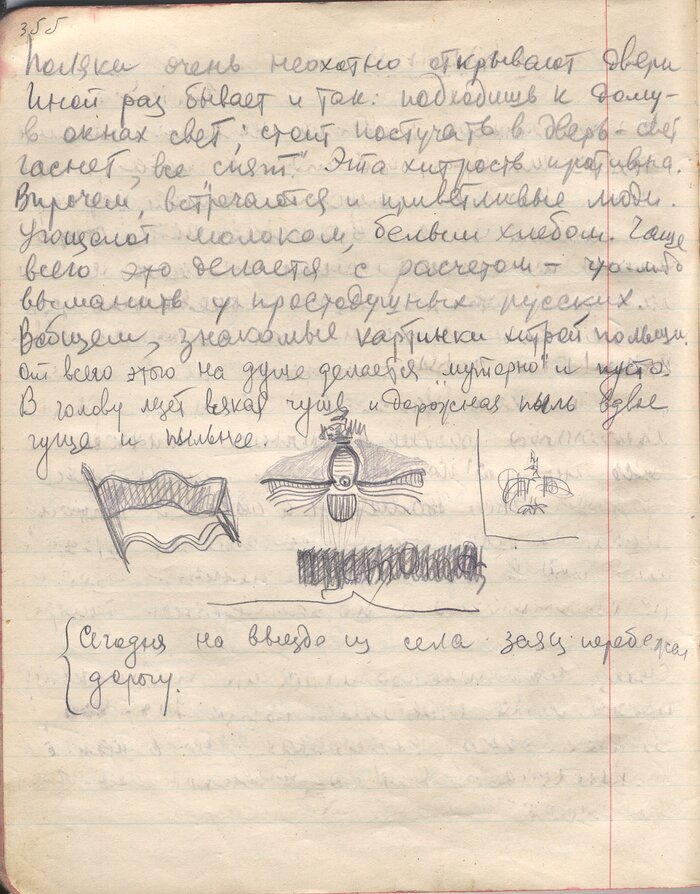 355
Поляки очень неохотно открывают двери
Иной раз бывает и так: подходишь к дому-
в окнах свет, стоит постучать в дверь - свет
гаснет, все спят." Эта хитрость противна.
Впрочем, встречаются и приветливые люди.
Угощают молоком, белым хлебом. Чаще
всего это делается с расчетом - что-либо
выманить у простодушных русских.
Вобщем, знакомые картинки хитрой польши.
От всего этого на душе делается "муторно" и пусто.
В голову лезет всякая чушь и дорожная пыль вдвое
гуще и пыльнее
Сегодня на выезде из села заяц перебежал
дорогу.